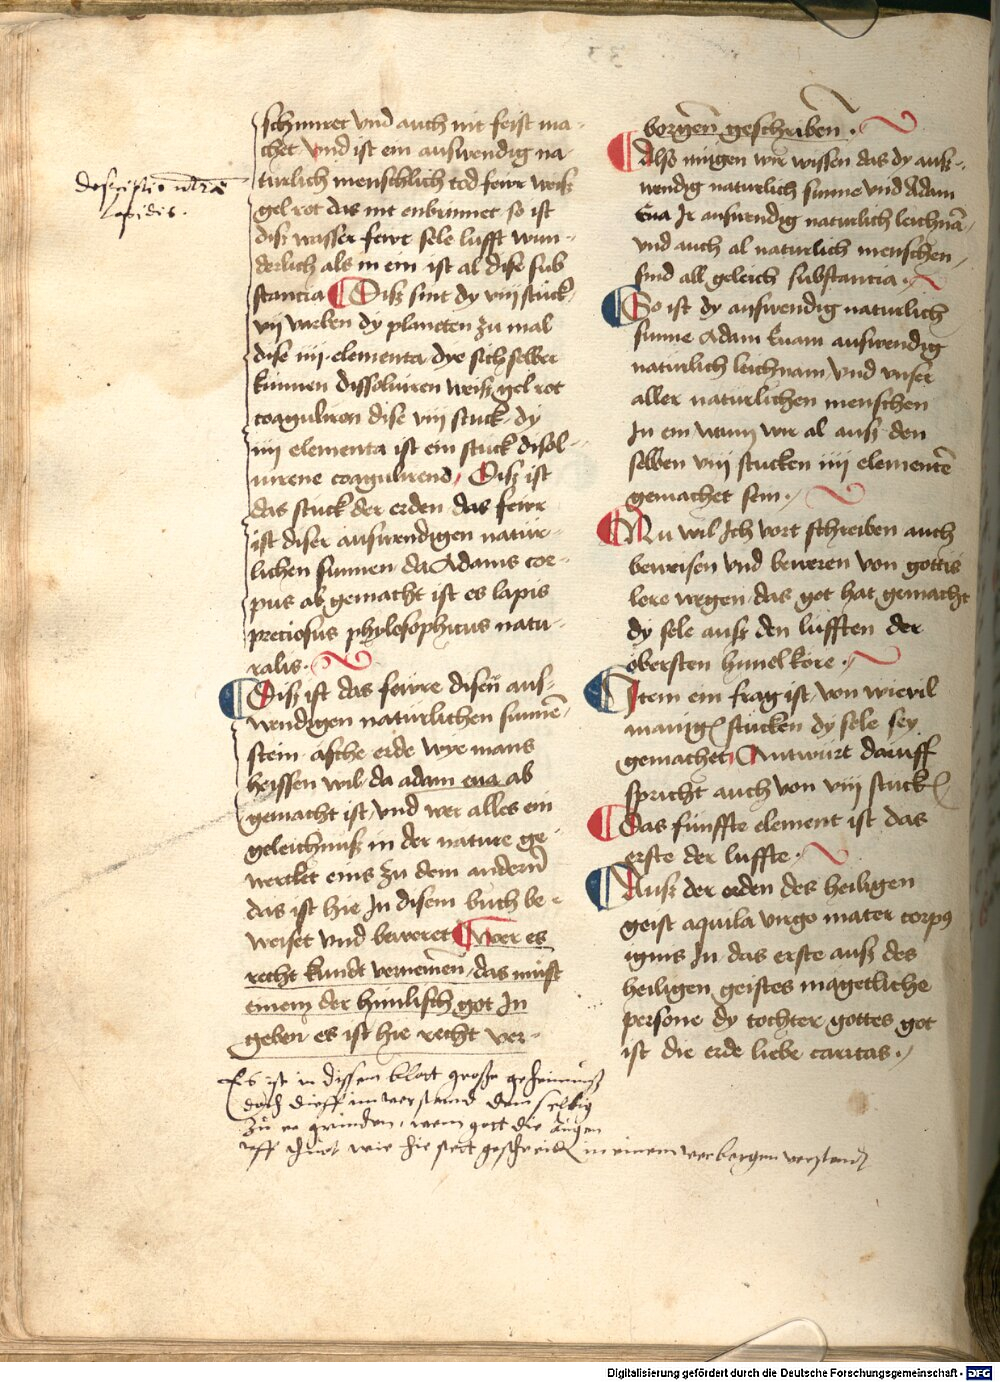 descriptio materie
lapidis.
schmiret vnd auch nit feist ma-
chet vnd ist ein auswendig na-
turlich menschlich tod fewr weiß
gel rot das nit enbrinnet so ist
diß wasser fewr sele lufft wun-
derlich als in ein ist al dise sub
stantia Diß sint dy viij stuck,
vij varben dy planeten zu mal
dise iiij elementa dye sich selber
kunnen dissoluiren weiß gel rot
coaguliren dise viij stuck, dy
iiij elementa ist ein stuck disol-
uirene coagulirend, Diß ist
das stuck der erden das fewr
ist diser auswendigen natur-
lichen sunnen da Adams cor-
pus ab gemacht ist es lapis
preciosus phylosophicus natu-
ralis.
Diß ist das fewre disen aus-
wendigen naturlichen sunnē,
stein asche erde wye mans
heissen wil da adam eua ab
gemacht ist, vnd wer alles ein
geleichnuß in der nature ge-
wercket eins zu dem andern
das ist hie In disem buch be-
weiset vnd beweret Wer es
recht kundt vernemen, das must
einem der himlisch got In
geben es ist hie recht ver-
borgen geschriben.
Also mugen wir wissen das dy auß-
wendig naturlich sunne vnd Adam
Eua Ir auswendig naturlich leichnā,
vnd auch al naturlich menschen,
sind all geleich substantia.
So ist dy auswendig naturlich
sunne Adam Euam auswendig
naturlich leichnam vnd vnser
aller naturlichen menschen
In ein wann wir al auß den
selben viij stucken iiij elementē
gemachet sein.
Nu wil Ich vort schreiben auch
beweisen vnd beweren von gottis
lere wegen das got hat gemacht
dy sele auß den lufften der
obersten himel köre.
Item ein frag ist, von wievil
manig stucken dy sele sey
gemachet, Antwurt daruff
spricht auch von viij stuck
Das funffte element ist das
erste der luffte.
Auß der orden des heiligen
geist aquila virgo mater corpus
ignis In das erste auß des
heiligen geistes magetliche
persone dy tochter gottes got
ist die erde liebe caritas.
Es ist in dissem blatt große geheimnuß
doch dieff im verstand dem selbig
zu er grinden, wem gott die augen
uff thuot wie hie stett geschreib in einem verborgen verstand
Digitalisierung gefördert durch die Deutsche Forschungsgemeinschaft - DFG